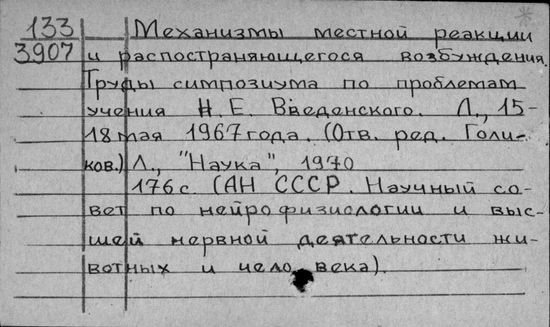 133 Механизмы местной реакции
3907 и распостраняющегося возбуждения.
Труды симпозиума по проблемам
учения Н.Е. Введенского. Л., 15-
18 мая 1967 года. (Отв. ред. Голи-
ков.) Л., "Наука", 1970
176 с. (АН СССР. Научный со-
вет по нейрофизиологии и выс-
шей нервной деятельности жи-
вотных и человека).